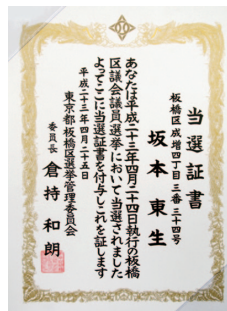 当選証書
板橋区成増四丁目三番三十四号
坂本東生
あなたは平成二十三年四月二十四日執行の板橋
区議会議員選挙において当選されました
よってここに当選証書を付与しこれを証します
平成二十三年四月二十五日
東京都板橋区選挙管理委員会
委員長 倉持和朗